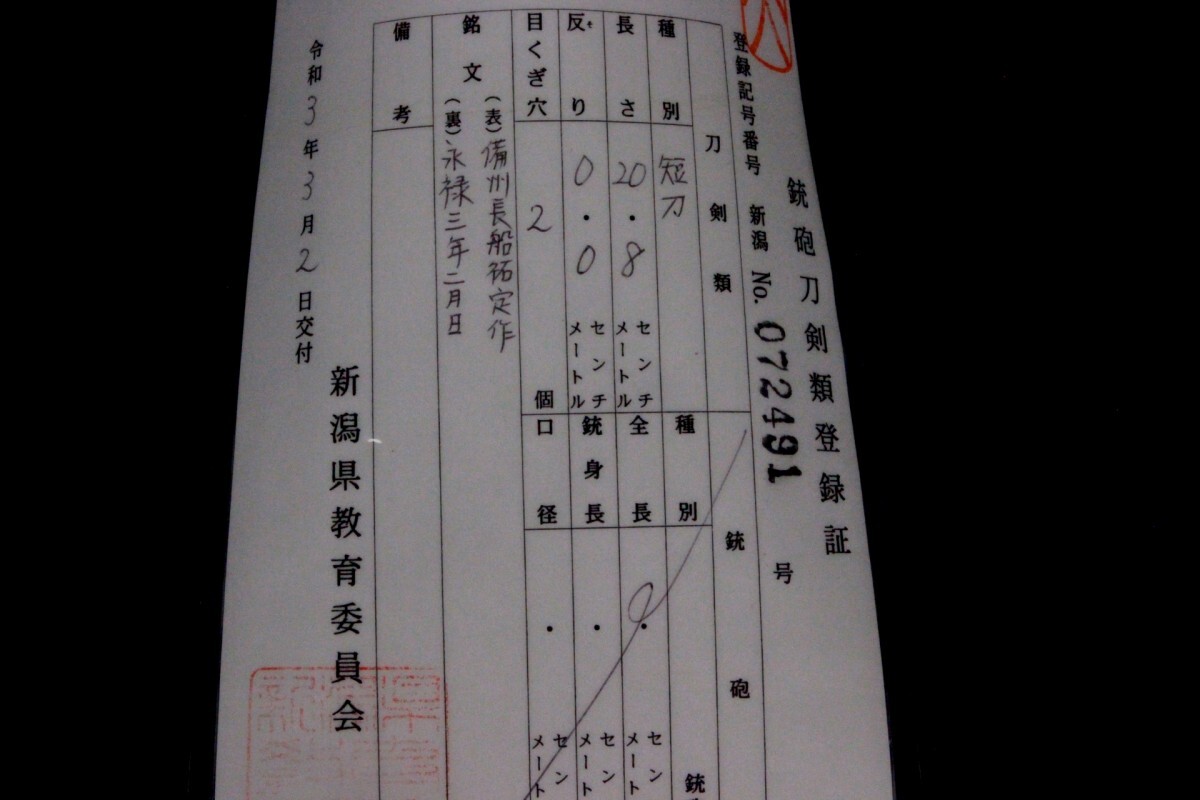 銃砲刀剣類登録証
登録記号番号 新潟 No. 072491 号
刀剣類
種別 短刀
長さ 20.8 センチメートル
反り 0.0 センチメートル
目くぎ穴 2 個
銘文 (表)備州長船祐定作
(裏)永禄三年二月日
備考
銃砲
種別
全長 . センメート
銃身長 . センメート
口径 . センメート
銃
令和3年3月2日交付
新潟県教育委員会